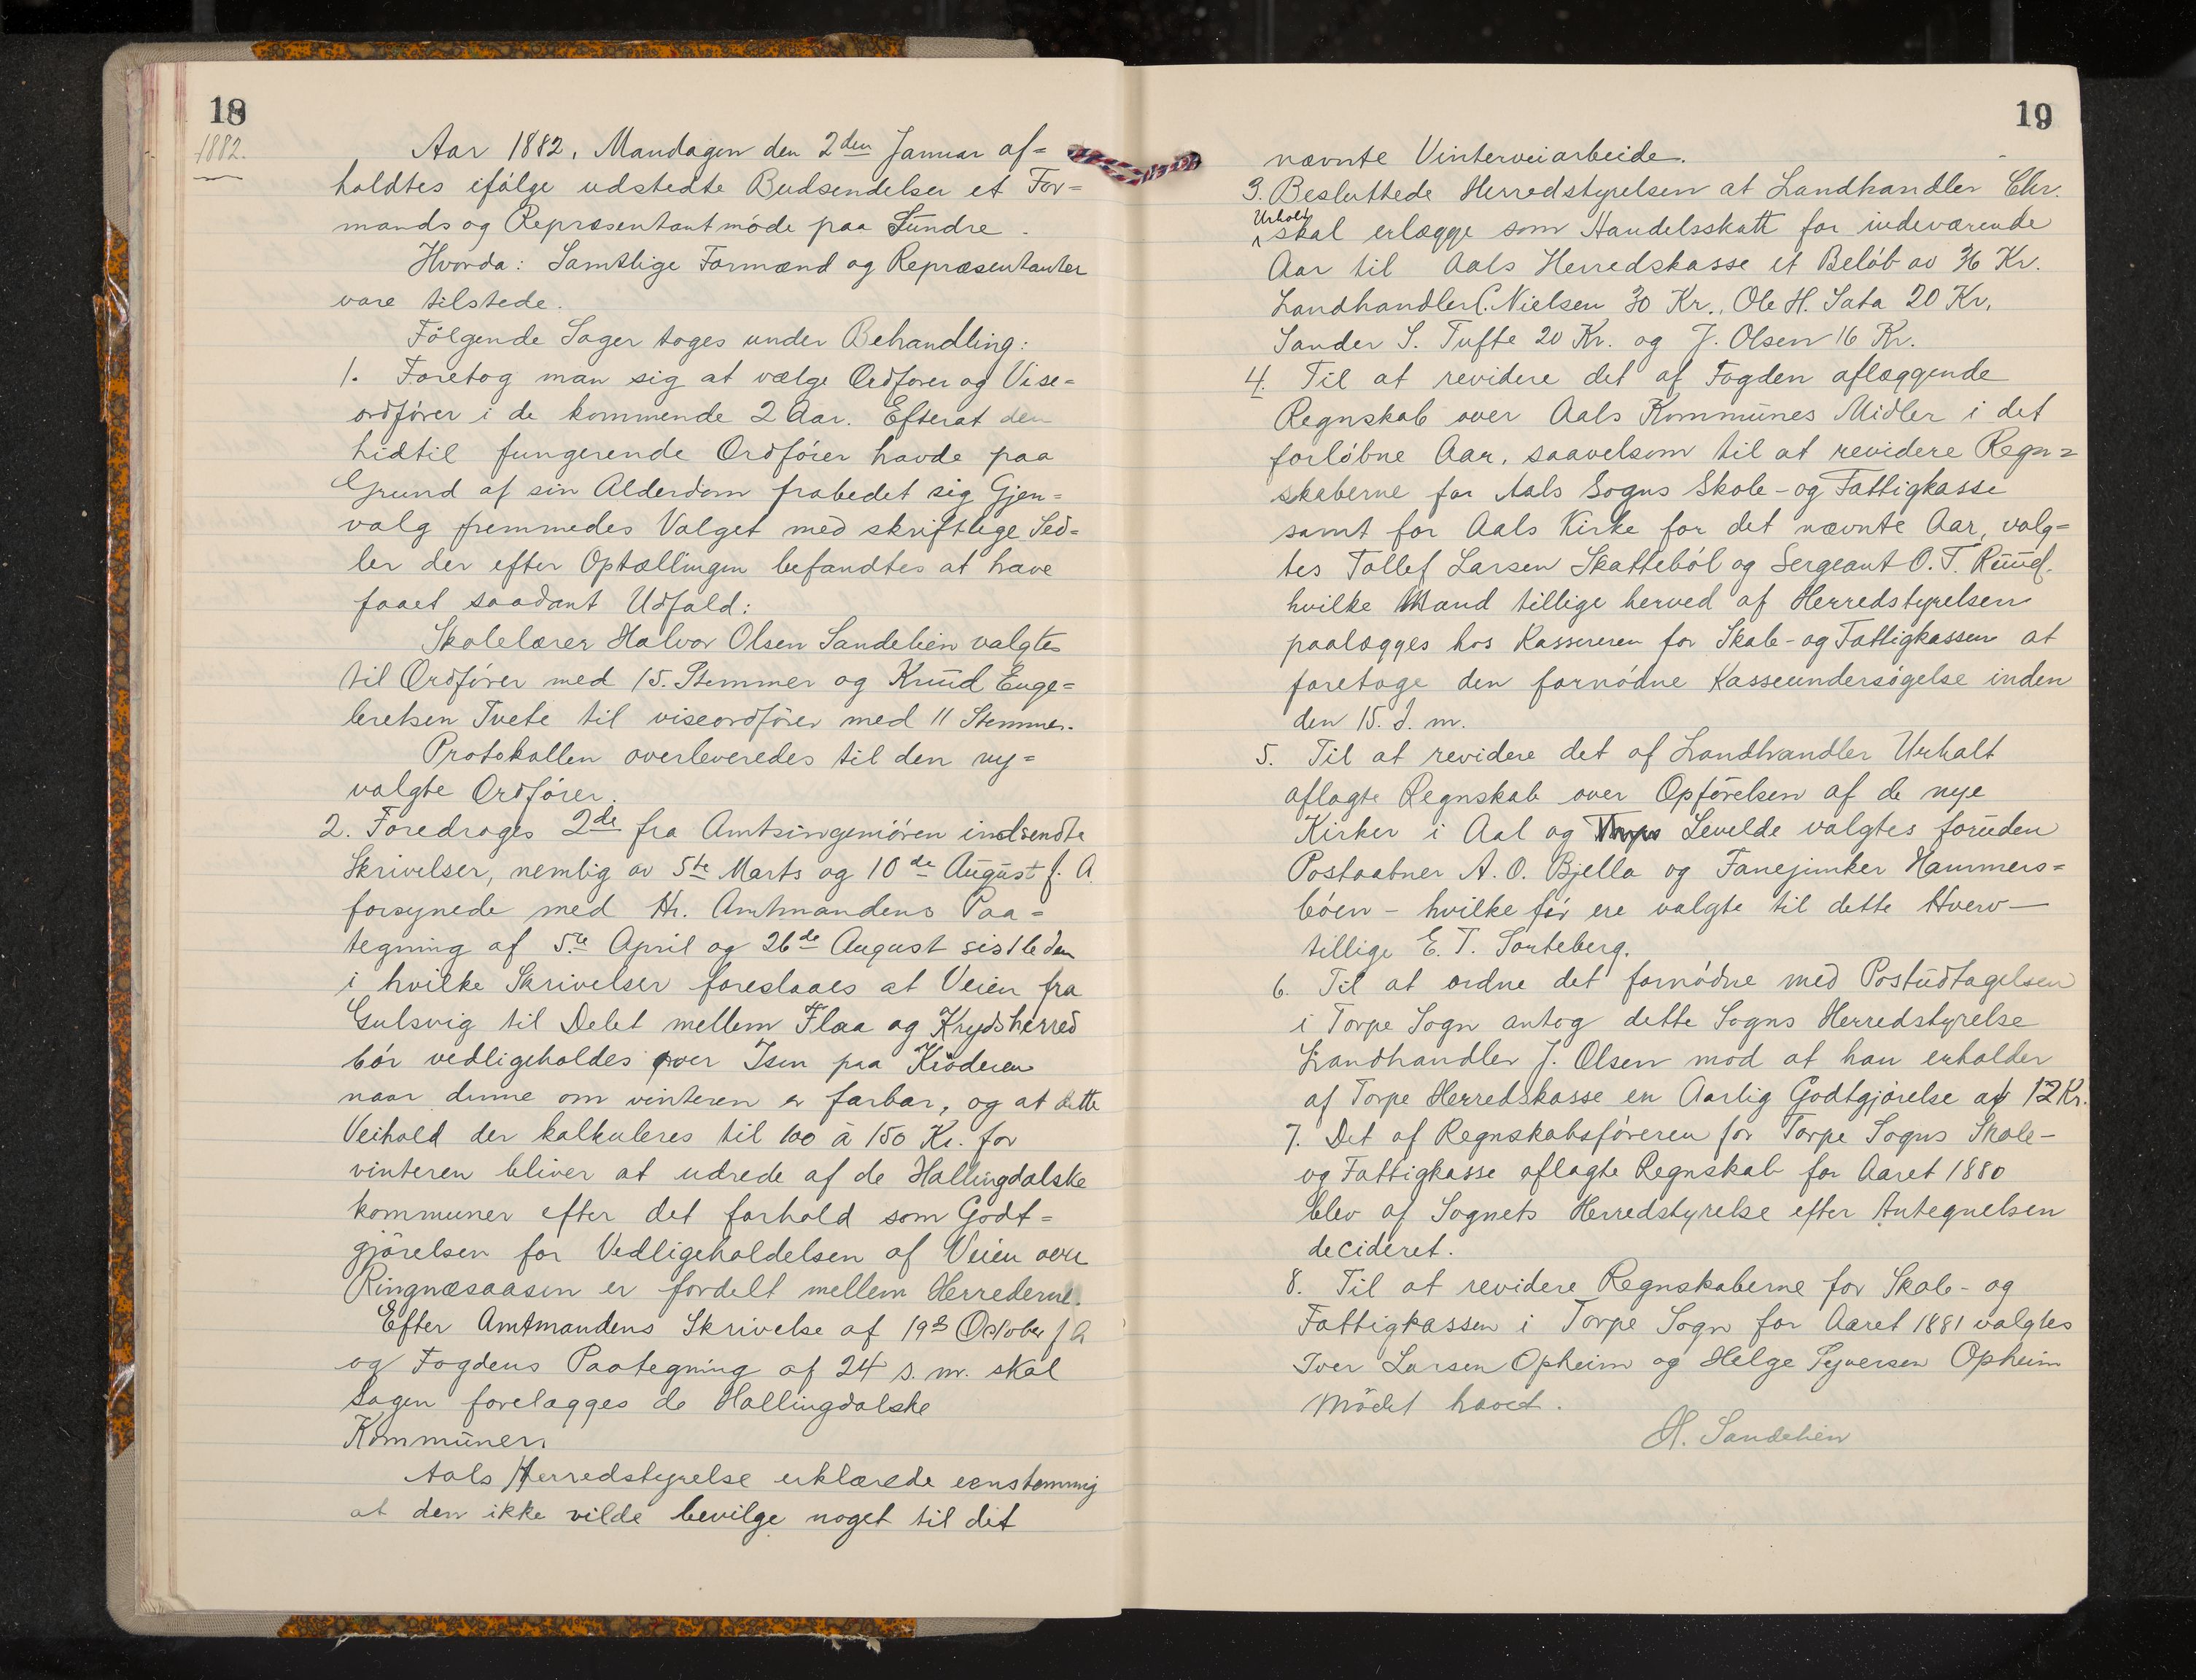 18
1882.
Aar 1882, Mandagen den 2den Januar af=
holdtes ifølge udstedte Budsendelser et For=
mands og Repræsentantmøde paa Sundre.
Hvorda: Samtlige Formænd og Repræsentanter
vare tilstede.
Følgende Sager toges under Behandling:
1. Foretog man sig at vælge Ordfører og Vise=
ordfører i de kommende 2 Aar. Efterat den
hidtil fungerende Ordfører havde paa
Grund af sin Alderdom frabedet sig Gjen=
valg fremmedes Valget med skriftlige Sed=
ler der efter Optællingen befandtes at have
faaet saadant Udfald:
Skolelærer Halvor Olsen Sandelien valgtes
til Ordfører med 15. Stemmer og Knud Enge=
bretsen Tvete til viseordfører med 11 Stemmer.
Protokollen overleveredes til den ny=
valgte Ordfører.
2. Foredroges 2de fra Amtsingeniøren indsendte
Skrivelser, nemlig av 5te Marts og 10de August f. A.
forsynede med Hr. Amtmandens Paa=
tegning af 5te April og 26de August sistleden
i hvilke Skrivelser foreslaaes at Veien fra
Gulsvig til Delet mellem Flaa og Krydsherred
bør vedligeholdes over Isen paa Krøderen
naar denne om vinteren er farbar, og at dette
Veihold der kalkuleres til 100 à 150 Kr. for
vinteren bliver at udrede af de Hallingdalske
kommuner efter det forhold som Godt=
gjørelsen for Vedligeholdelsen af Veien over
Ringnæsaasen er fordelt mellem Herrederne.
Efter Amtmandens Skrivelse af 19de October f A
og Fogdens Paategning af 24 s. m. skal
sagen forelægges de Hallingdalske
Kommuner.
Aals Herredstyrelse erklærede eenstemmig
at den ikke vilde bevilge noget til det
19
nævnte Vinterveiarbeide.
3. Besluttede Herredstyrelsen at Landhandler Chr.
Urholt skal erlægge som Handelsskatt for indeværende
Aar til Aals Herredskasse et Beløb av 36 Kr.
Landhandler C. Nielsen 30 Kr., Ole H. Sata 20 Kr,
Sander S. Tufte 20 Kr. og J. Olsen 16 Kr.
4. Til at revidere det af Fogden aflæggende
Regnskab over Aals Kommunes Midler i det
forløbne Aar, saavelsom til at revidere Regn=
skaberne for Aals Sogns Skole- og Fattigkasse
samt for Aals Kirke for det nævnte Aar, valg=
tes Tollef Larsen Skattebøl og Sergeant O. T. Ruud.
hvilke Mænd tillige herved af Herredstyrelsen
paalægges hos Kassereren for Skole- og Fattigkassen at
foretage den fornødne Kasseundersøgelse inden
den 15. d. m.
5. Til at revidere det af Landhandler Urholt
aflagte Regnskab over Opførelsen af de nye
Kirker i Aal og Levelde valgtes foruden
Postaabner A. O. Bjella og Fanejunker Hammers=
bøen - hvilke før ere valgte til dette Hverv —
tillige E. T. Sorteberg.
6. Til at ordne det fornødne med Postudtagelsen
i Torpe Sogn antog dette Sogns Herredstyrelse
Landhandler J. Olsen mod at han erholder
af Torpe Herredskasse en Aarlig Godtgjørelse af 12 Kr.
7. Det af Regnskabsføreren for Torpe Sogns Skole-
og Fattigkasse aflagte Regnskab for Aaret 1880
blev af Sognets Herredstyrelse efter Antegnelsen
decideret.
8. Til at revidere Regnskaberne for Skole- og
Fattigkassen i Torpe Sogn for Aaret 1881 valgtes
Iver Larsen Opheim og Helge Syversen Opheim
Mødet hævet.
H. Sandelien